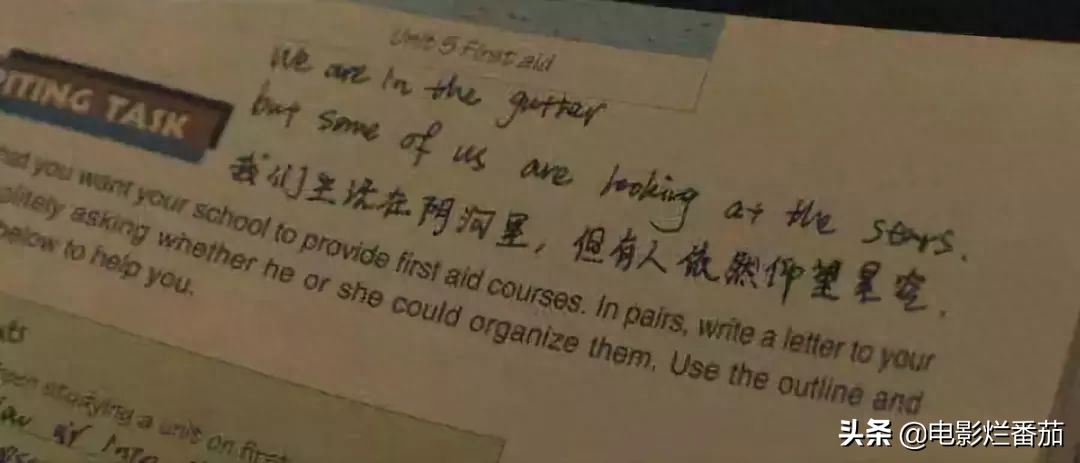 Unit 5 First aid
We are in the gutter
but some of us are looking at the stars.
我们生活在阴沟里，但有人依然仰望星空.
ITING TASK
you want your school to provide first aid courses. In pairs, write a letter to your
olitely asking whether he or she could organize them. Use the outline and
below to help you.
een studying a unit on first
头条 @电影烂番茄